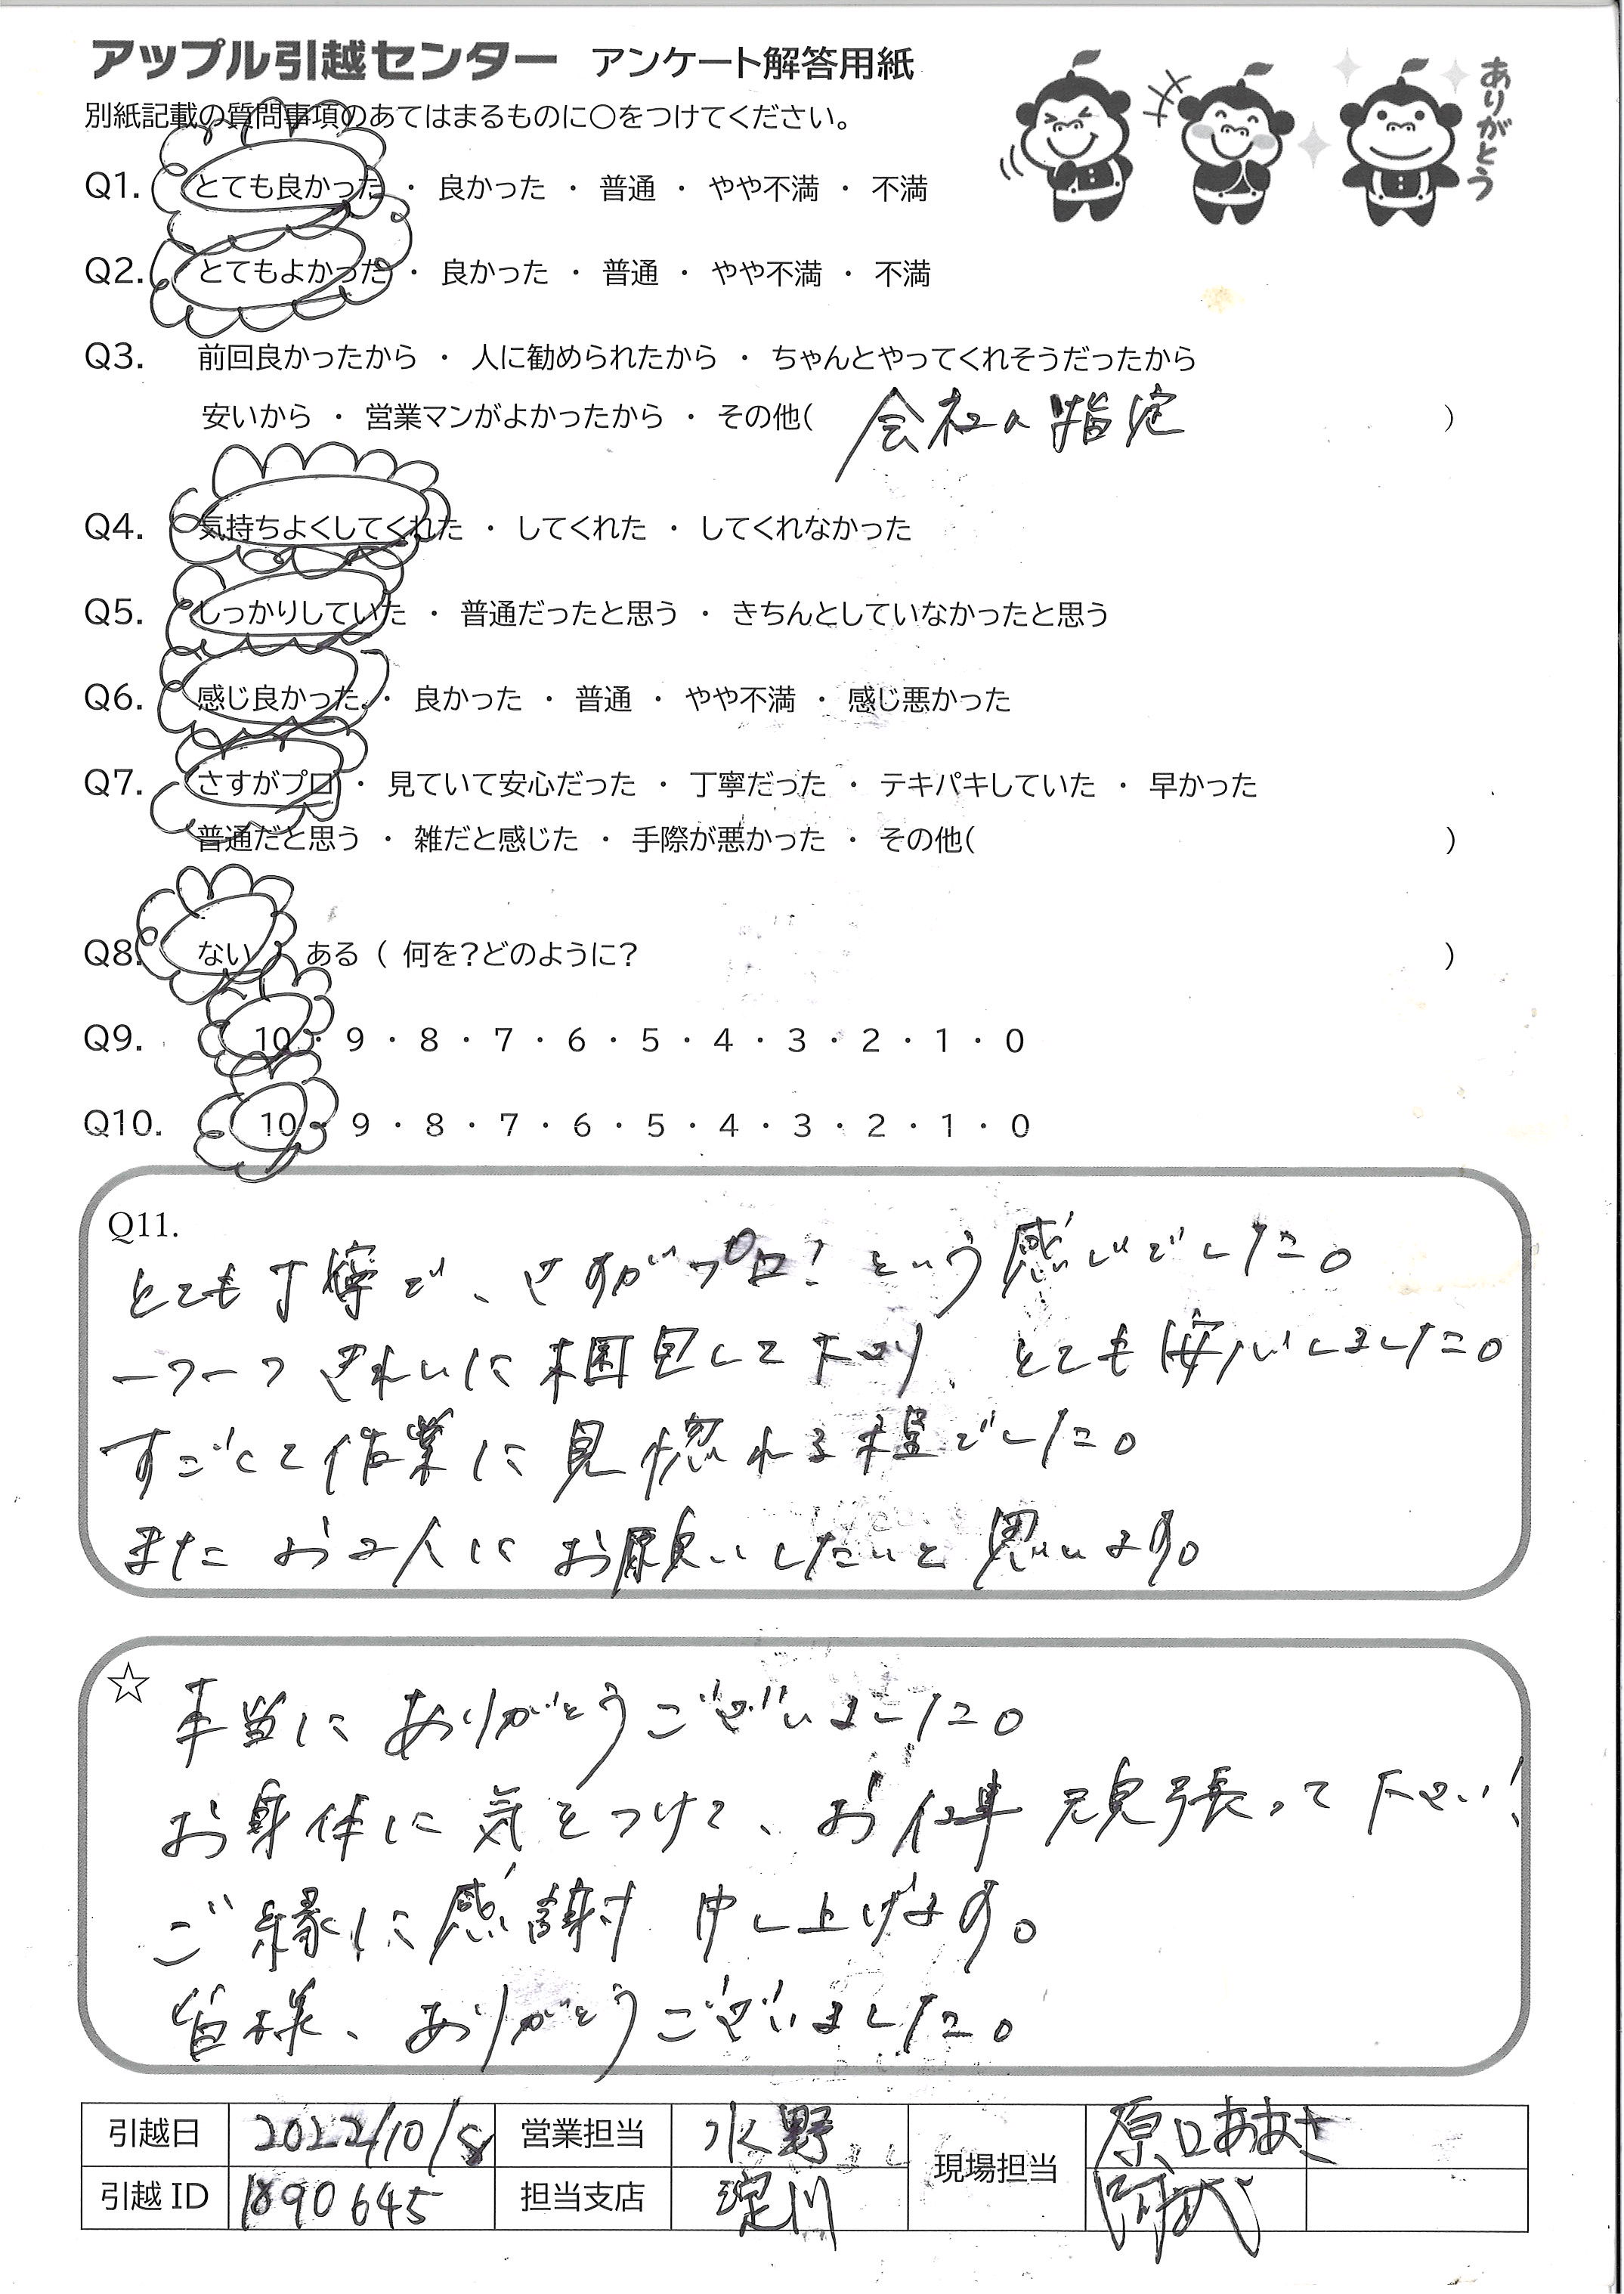 アップル引越センター アンケート解答用紙
ありがとう
別紙記載の質問事項のあてはまるものに○をつけてください。
Q1. とても良かった ・ 良かった ・ 普通 ・ やや不満 ・ 不満
Q2. とてもよかった ・ 良かった ・ 普通 ・ やや不満 ・ 不満
Q3. 前回良かったから ・ 人に勧められたから ・ ちゃんとやってくれそうだったから
安いから ・ 営業マンがよかったから ・ その他( 会社の指定 )
Q4. 気持ちよくしてくれた ・ してくれた ・ してくれなかった
Q5. しっかりしていた ・ 普通だったと思う ・ きちんとしていなかったと思う
Q6. 感じ良かった ・ 良かった ・ 普通 ・ やや不満 ・ 感じ悪かった
Q7. さすがプロ ・ 見ていて安心だった ・ 丁寧だった ・ テキパキしていた ・ 早かった
普通だと思う ・ 雑だと感じた ・ 手際が悪かった ・ その他( )
Q8. ない ・ ある ( 何を?どのように? )
Q9. 10 ・ 9 ・ 8 ・ 7 ・ 6 ・ 5 ・ 4 ・ 3 ・ 2 ・ 1 ・ 0
Q10. 10 ・ 9 ・ 8 ・ 7 ・ 6 ・ 5 ・ 4 ・ 3 ・ 2 ・ 1 ・ 0
Q11.
とても丁寧で、さすがプロ!という感じでした。
一つ一つきれいに梱包して下さり、とても安心しました。
すごくて作業に見惚れる程でした。
またお2人にお願いしたいと思います。
☆ 本当にありがとうございました。
お身体に気をつけて、お仕事頑張って下さい!
ご縁に感謝申し上げます。
皆様、ありがとうございました。
引越日 2022/10/8 営業担当 水野 現場担当 原口
引越ID 1890645 担当支店 淀川 阿武